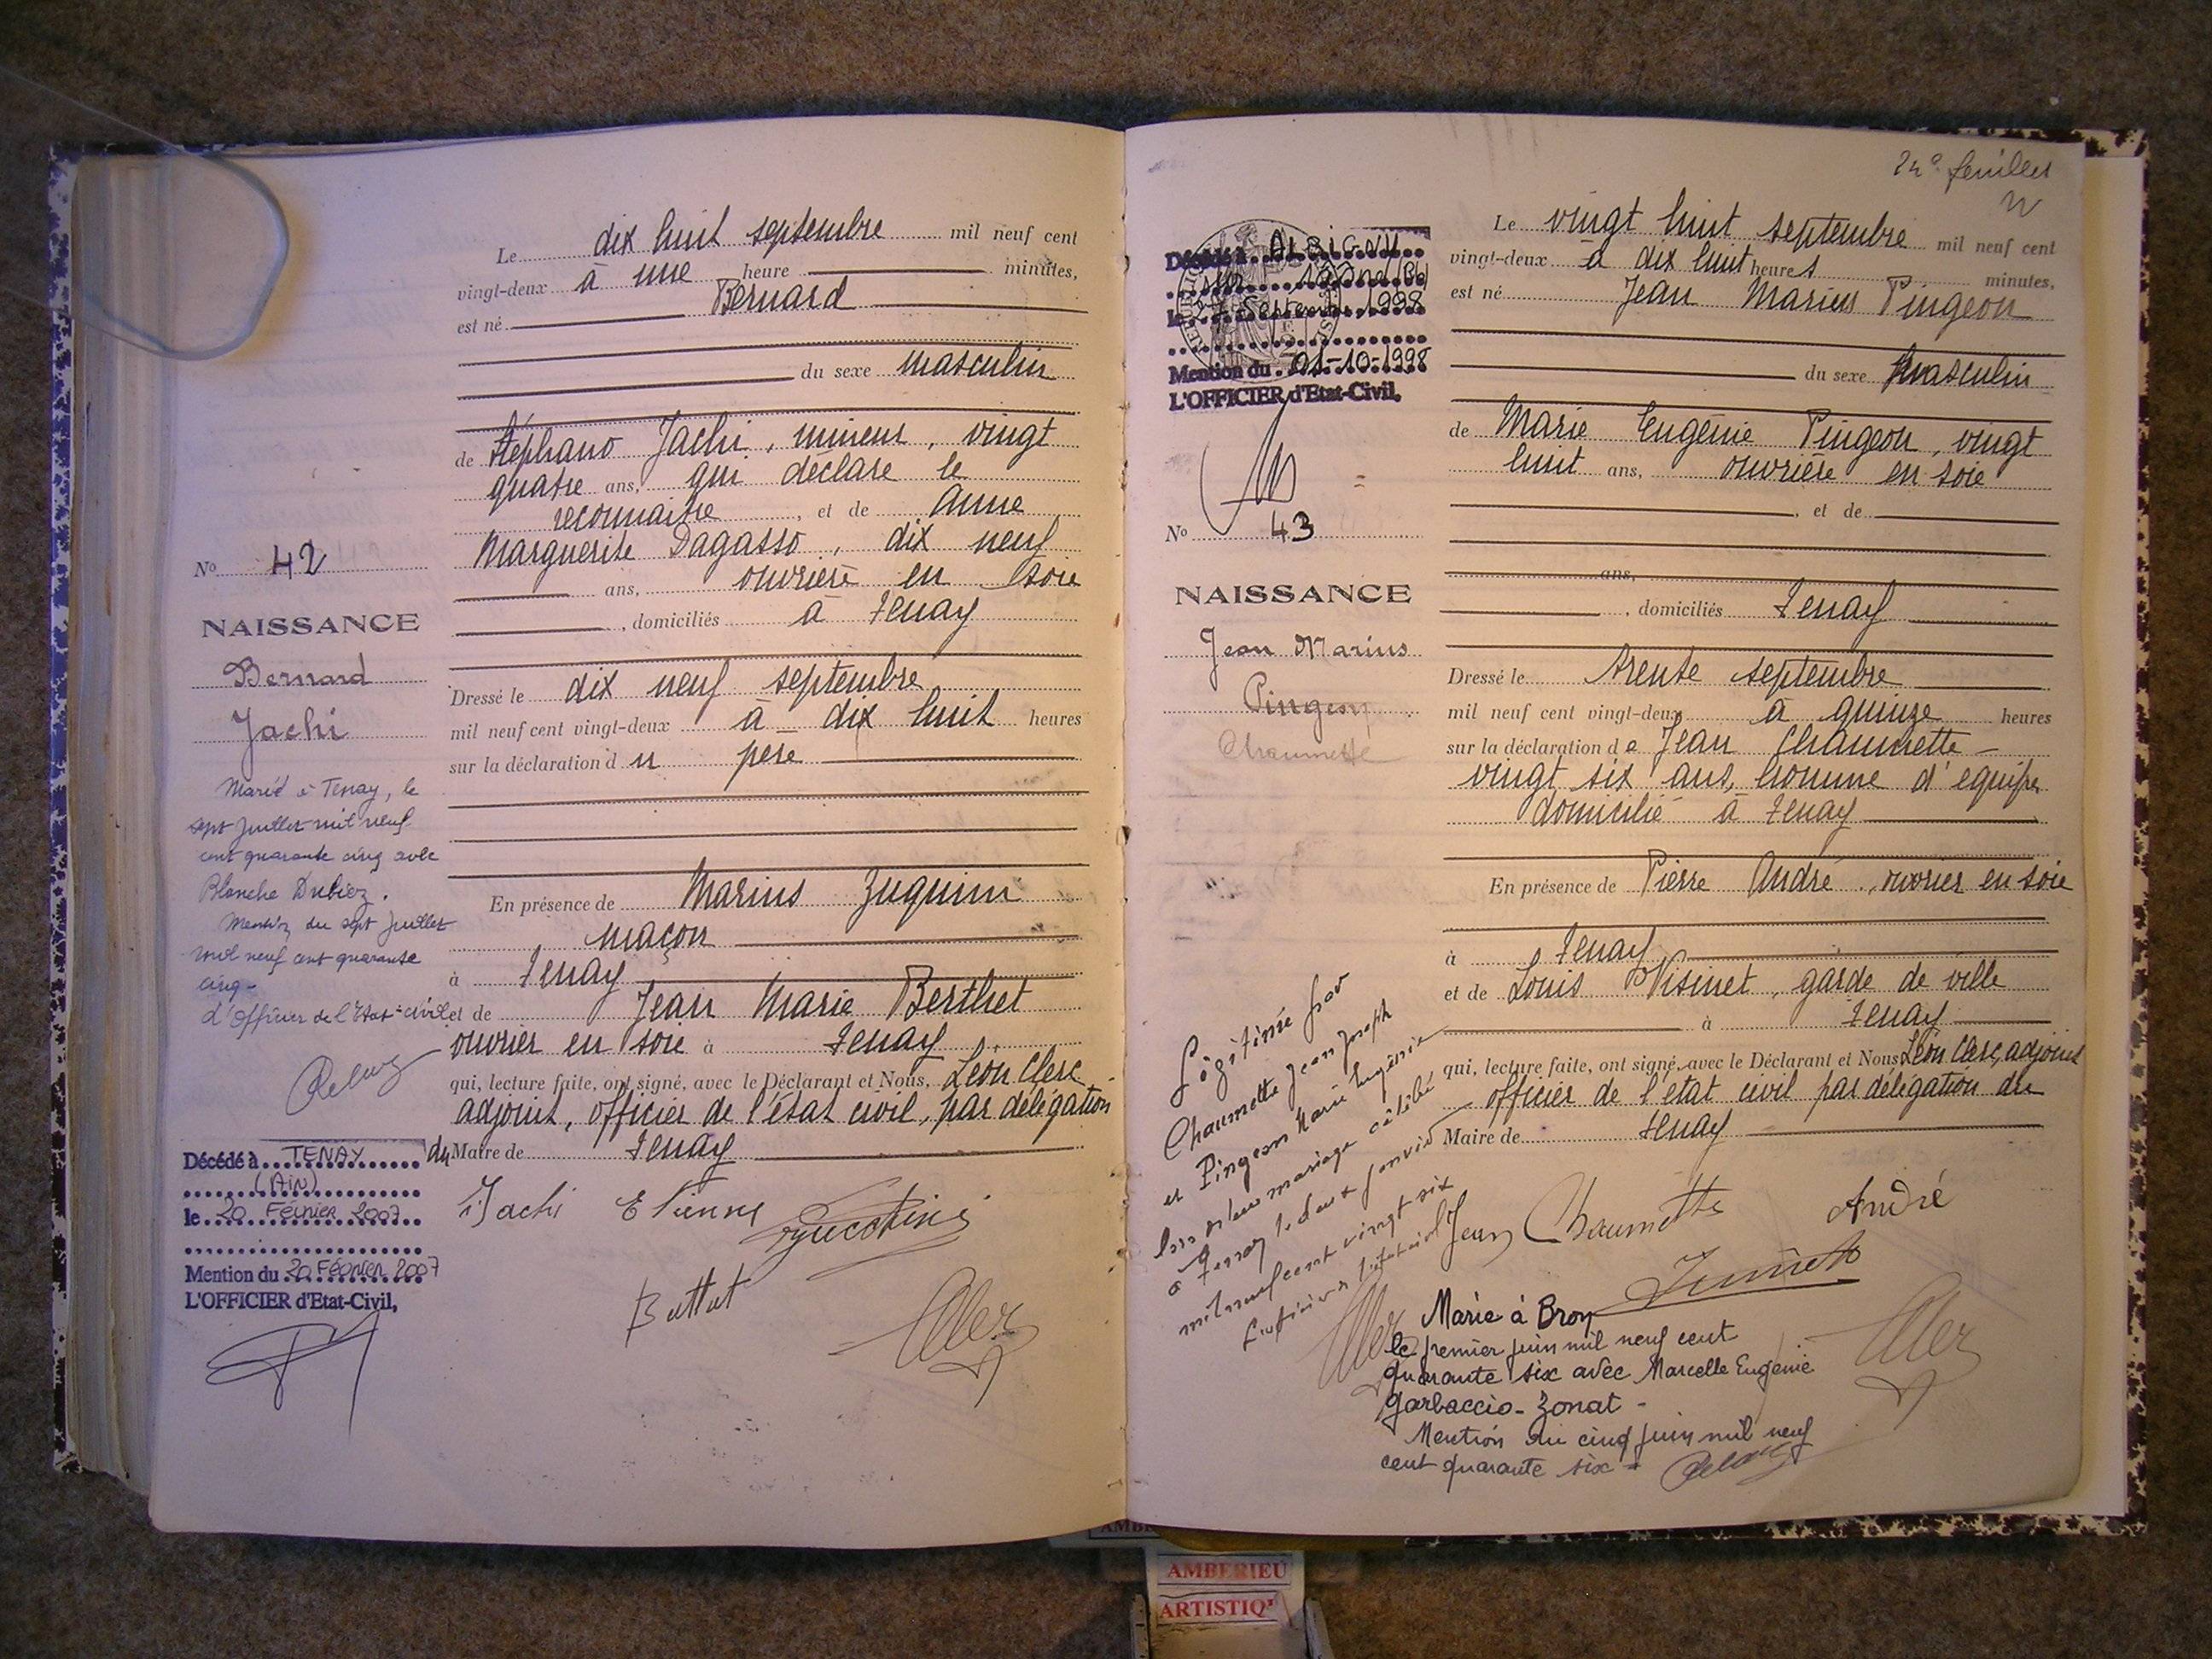 Le dix huit septembre mil neuf cent
vingt-deux à une heure minutes,
est né Bernard
du sexe masculin
de Stéphano Jachi, mineur, vingt
quatre ans, qui déclare le
reconnaitre, et de Anne
Marguerite Dagasso, dix neuf
ans, ouvrière en soie
, domiciliés à Tenay
Dressé le dix neuf septembre
mil neuf cent vingt-deux à dix huit heures
sur la déclaration du père
En présence de Marius Zuquini
maçon
à Tenay
et de Jean Marie Berthet
ouvrier en soie à Tenay
qui, lecture faite, ont signé, avec le Déclarant et Nous, Léon Clerc
adjoint, officier de l'état civil, par délégation
du Maire de Tenay
Jachi Etienne
No 42
NAISSANCE
Bernard
Jachi
Marié à Tenay, le
sept juillet mil neuf
cent quarante cinq avec
Blanche Dubiez.
Mention du sept juillet
mil neuf cent quarante
cinq-
L'Officier de l'Etat-civil
Décédé à TENAY
(AIN)
le 20 Février 2007
Mention du 20 Février 2007
L'OFFICIER d'Etat-Civil,
24e feuillet
Le vingt huit septembre mil neuf cent
vingt-deux à dix huit heures minutes,
est né Jean Marius Pingeon
du sexe masculin
de Marie Eugénie Pingeon, vingt
huit ans, ouvrière en soie
, et de
ans,
, domiciliés Tenay
Dressé le trente septembre
mil neuf cent vingt-deux à quinze heures
sur la déclaration de Jean Chaumette
vingt six ans, homme d'équipe
domicilié à Tenay
En présence de Pierre André, ouvrier en soie
à Tenay
et de Louis Visinet, garde de ville
à Tenay
qui, lecture faite, ont signé avec le Déclarant et Nous Léon Clerc, adjoint
officier de l'état civil par délégation du
Maire de Tenay
Jean Chaumette André
Décédé à ALBIGNY
sur Saône (Rh)
le 27 Septembre 1998
Mention du 01-10-1998
L'OFFICIER d'Etat-Civil,
No 43
NAISSANCE
Jean Marius
Pingeon
Chaumette
Légitimé par
Chaumette Jean Joseph
et Pingeon Marie Eugénie
lors de leur mariage célébré
à Tenay le deux janvier
mil neuf cent vingt six
L'officier de l'état civil
Marié à Bron
le premier juin mil neuf cent
quarante six avec Marcelle Eugénie
Garbaccio-Zonat-
Mention du cinq juin mil neuf
cent quarante six -
AMBERIEU
ARTISTIQ